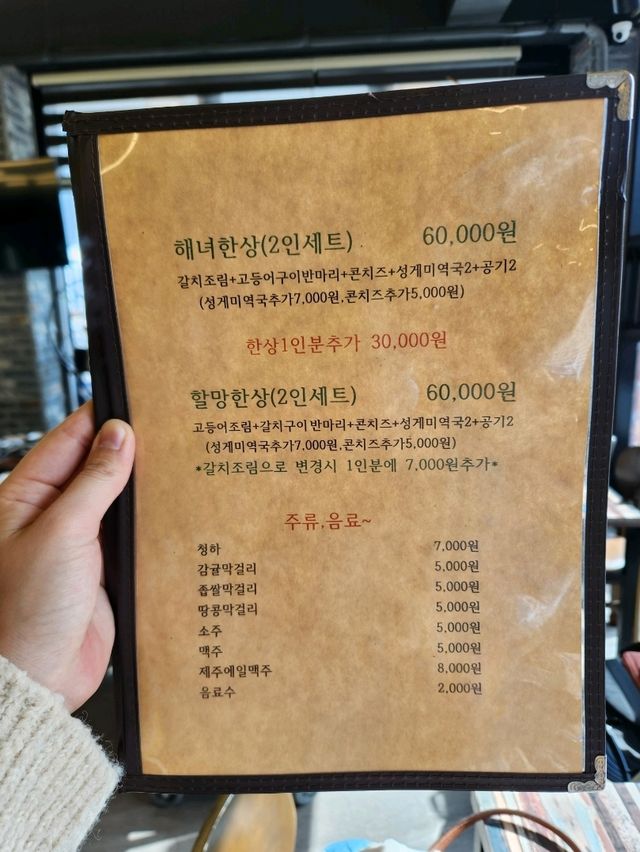 해녀한상(2인세트) 60,000원
갈치조림+고등어구이반마리+콘치즈+성게미역국2+공기2
(성게미역국추가7,000원,콘치즈추가5,000원)
한상1인분추가 30,000원
할망한상(2인세트) 60,000원
고등어조림+갈치구이반마리+콘치즈+성게미역국2+공기2
(성게미역국추가7,000원,콘치즈추가5,000원)
*갈치조림으로 변경시 1인분에 7,000원추가*
주류,음료~
청하 7,000원
감귤막걸리 5,000원
좁쌀막걸리 5,000원
땅콩막걸리 5,000원
소주 5,000원
맥주 5,000원
제주에일맥주 8,000원
음료수 2,000원